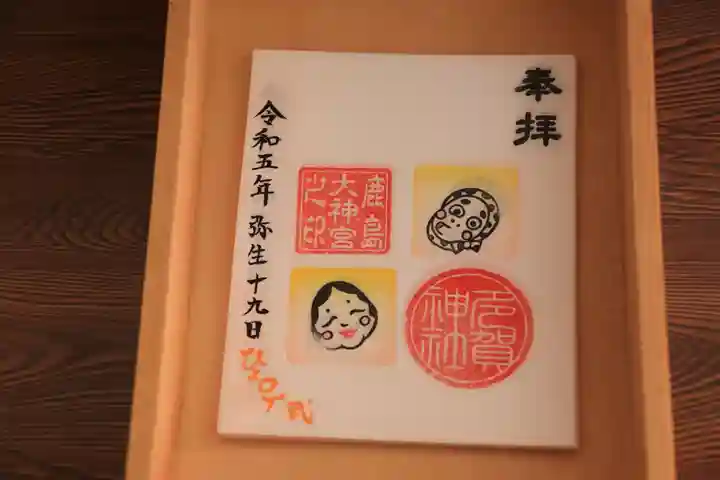 奉拝
鹿島
大神宮
之印
多賀
神社
令和五年 弥生十九日